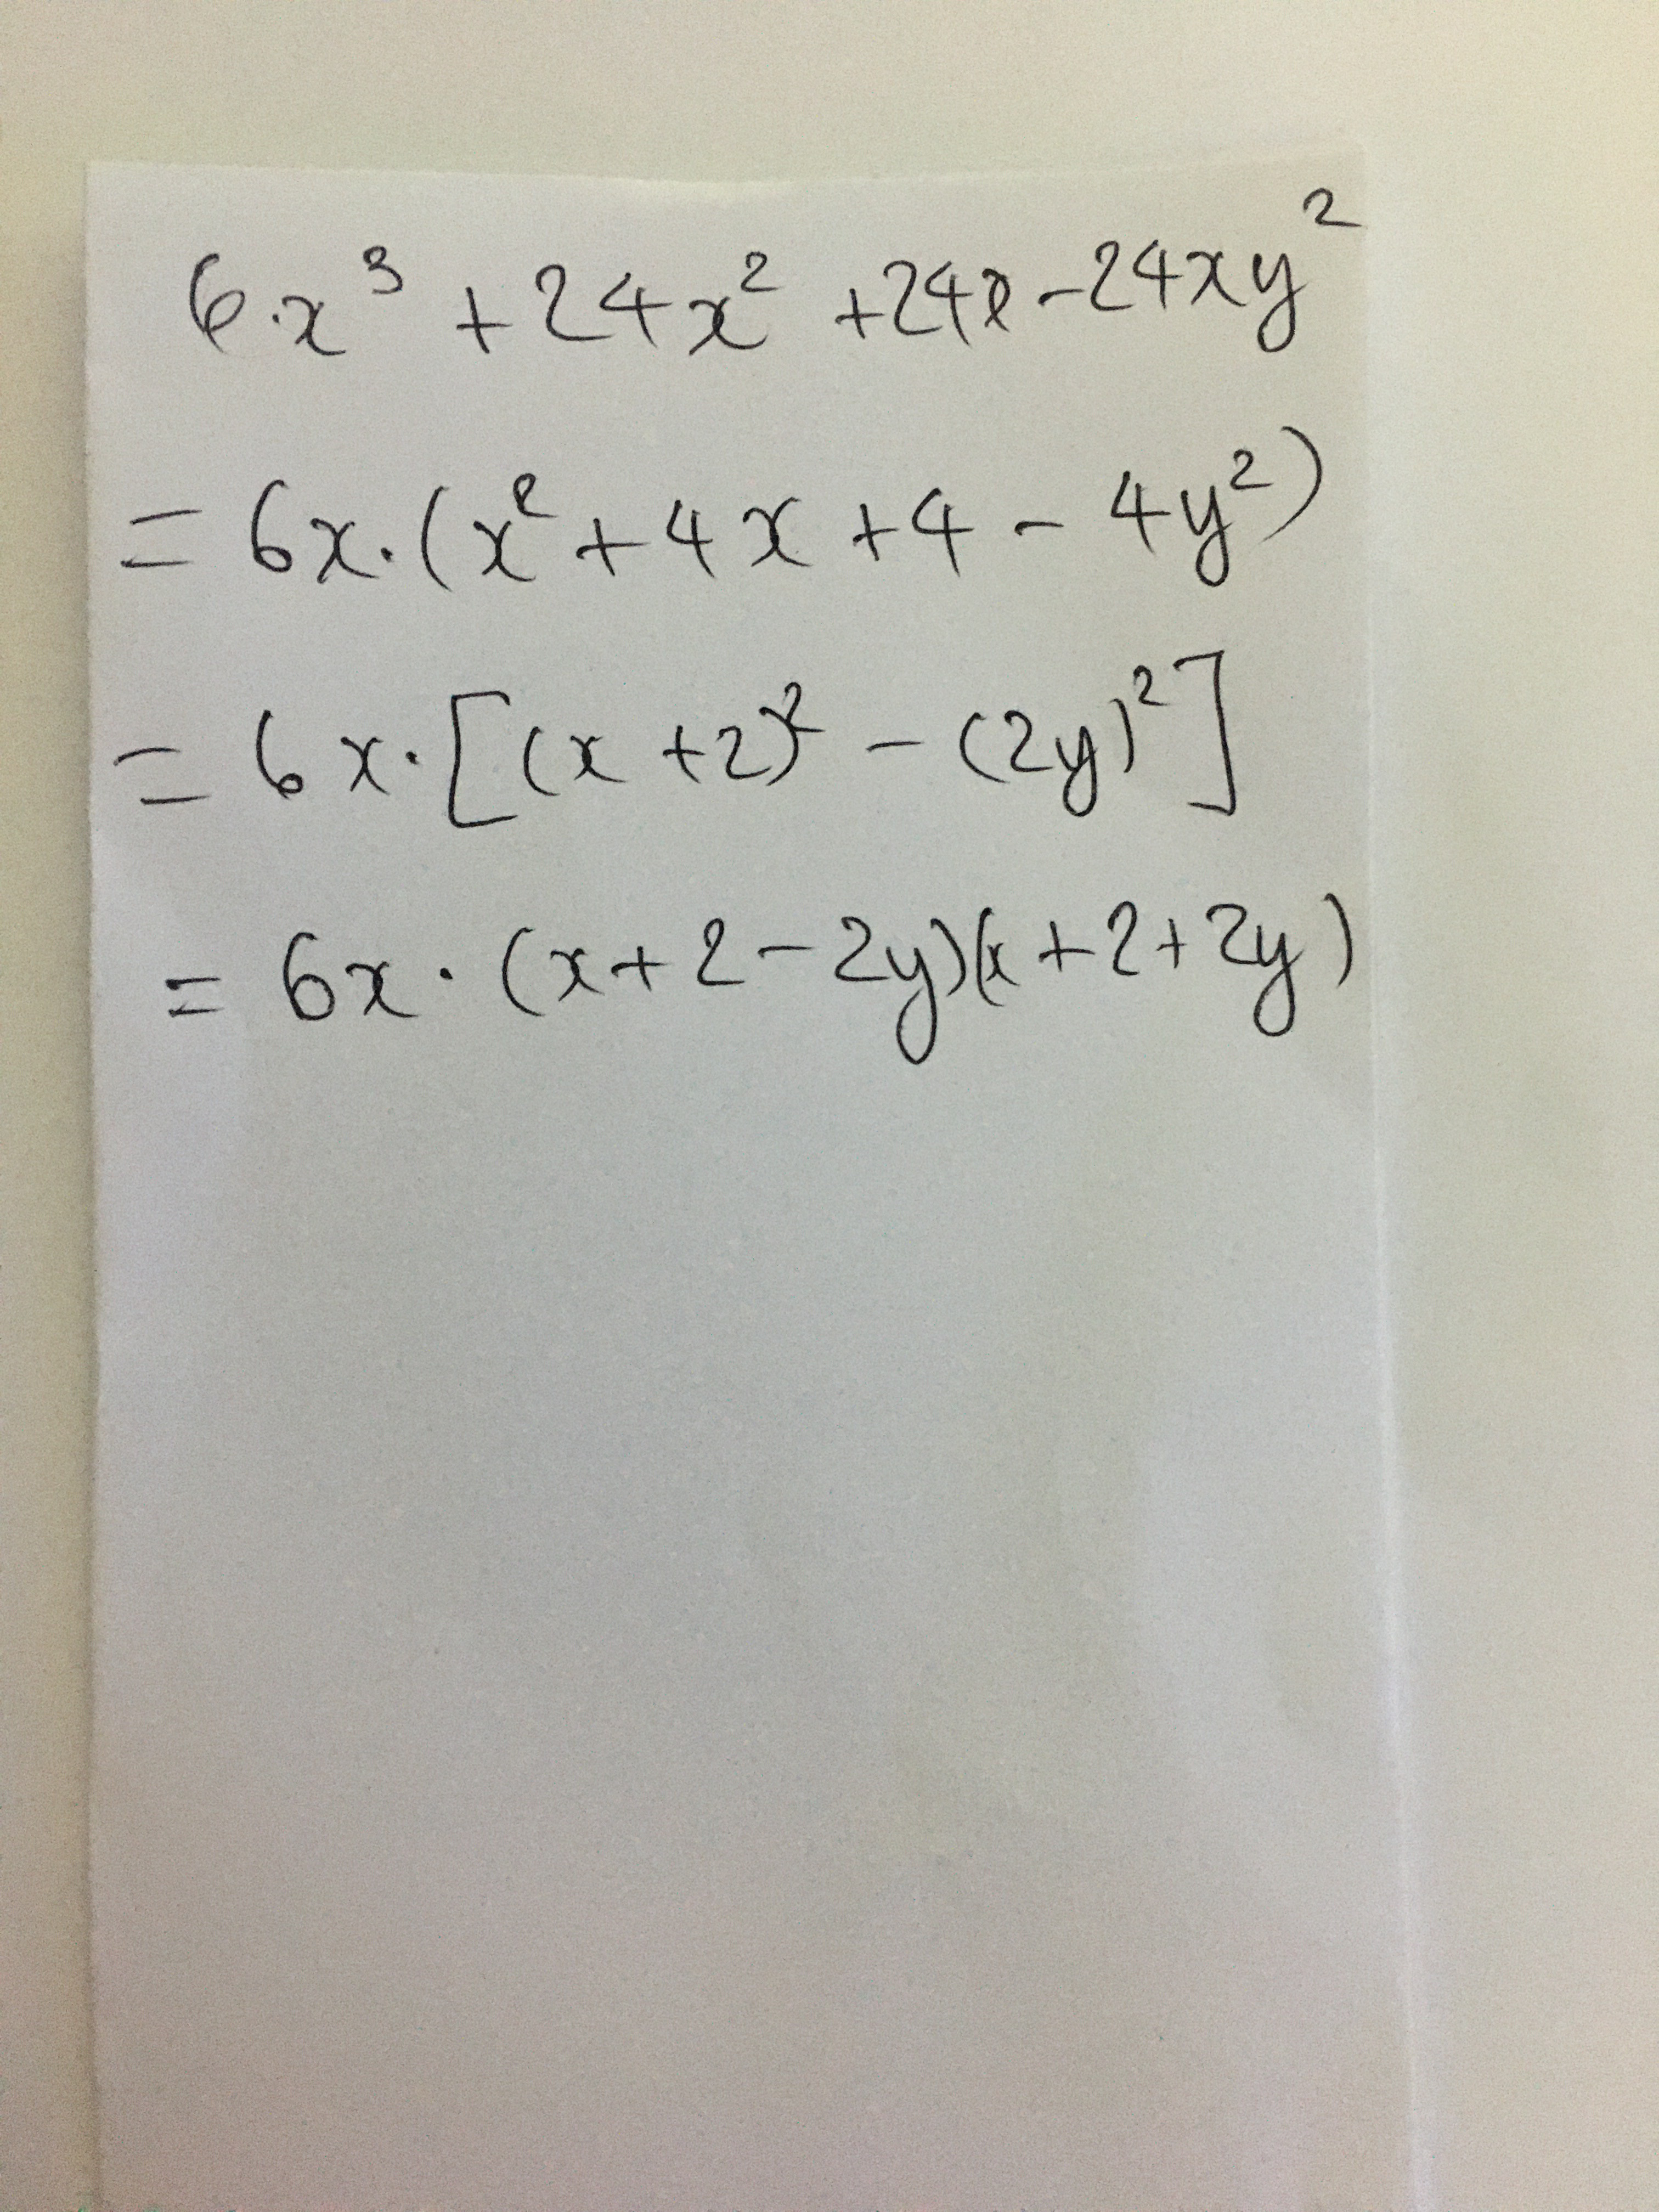 6.x³ + 24x² + 24x - 24xy²
= 6x.(x² + 4x + 4 - 4y²)
= 6x.[(x + 2)² - (2y)²]
= 6x.(x + 2 - 2y)(x + 2 + 2y)